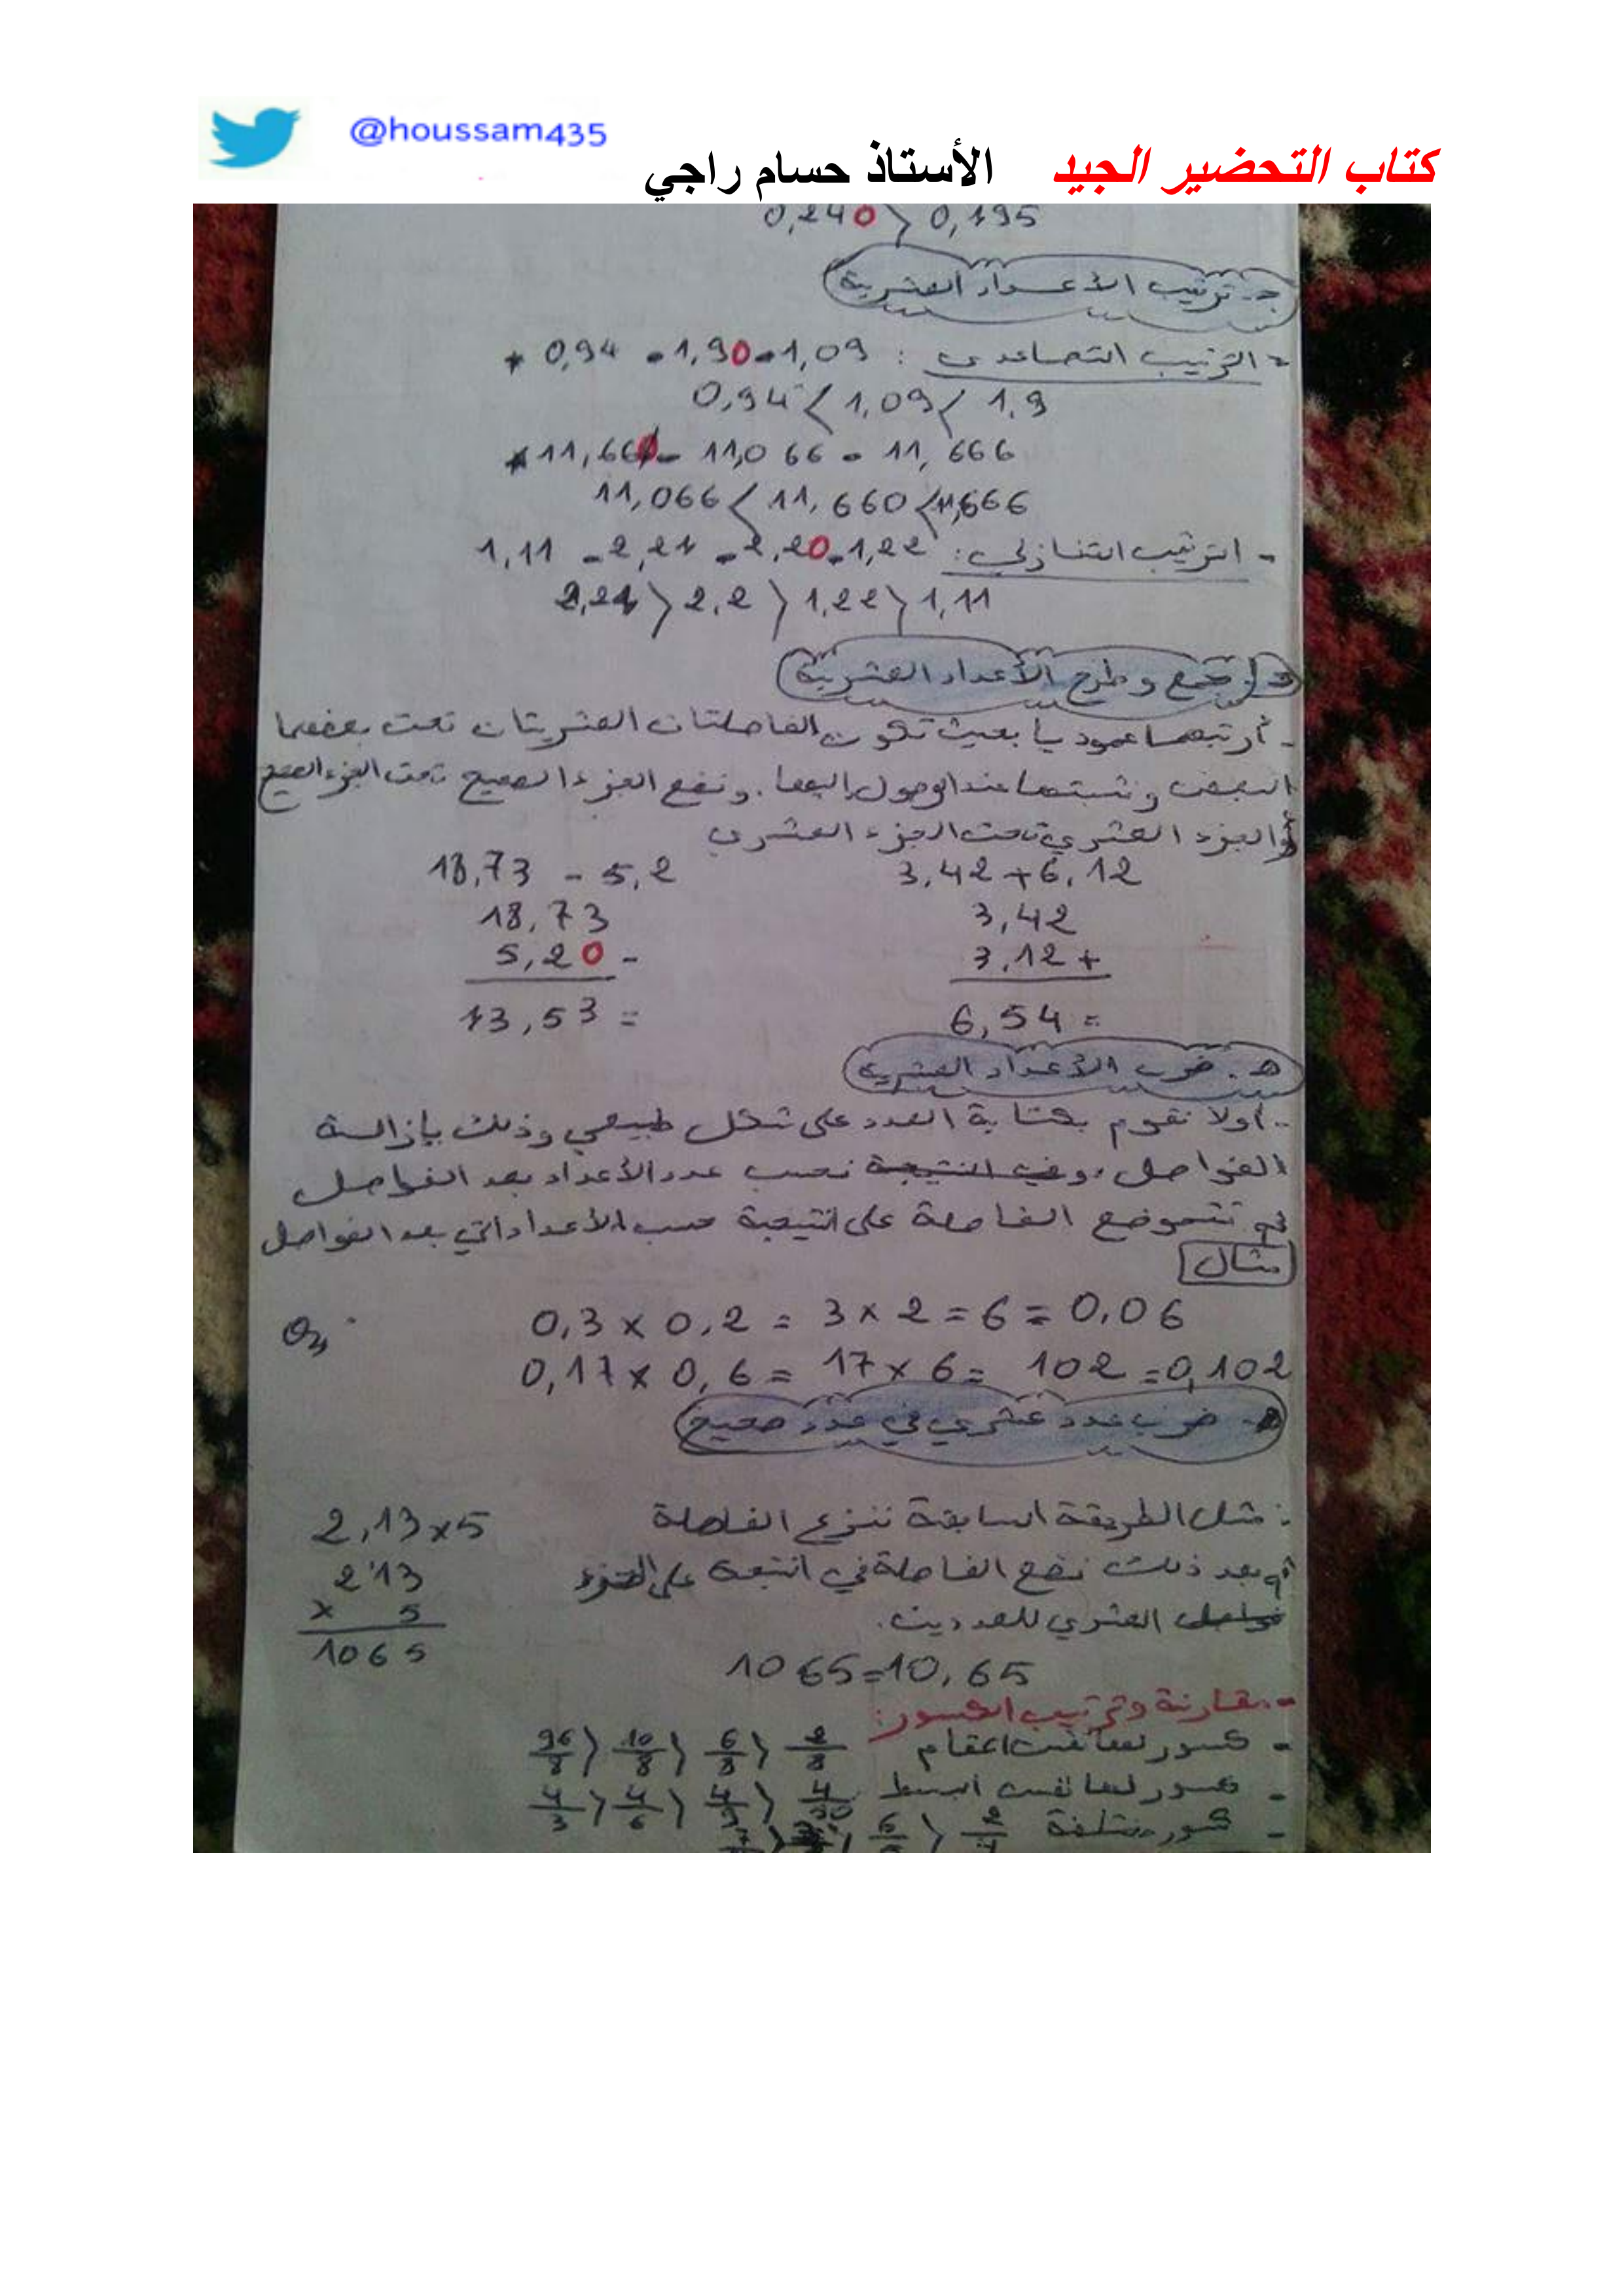 @houssam435
كتاب التحضير الجيد الأستاذ حسام راجي
0,240 > 0,195
ج- ترتيب الأعداد العشرية
- الترتيب التصاعدي : 1,09 - 1,90 - 0,94 *
0,94 < 1,09 < 1,9
* 11,660 - 11,066 - 11,666
11,066 < 11,660 < 11,666
- الترتيب التنازلي: 1,11 - 2,21 - 2,20 - 1,22
2,21 > 2,2 > 1,22 > 1,11
د- جمع و طرح الأعداد العشرية
- أرتبهما عموديا بحيث تكون الفاصلتان العشريتان تحت بعضهما
البعض و نثبتها عند الوصول إليها. ونضع الجزء الصحيح تحت الجزء الصحيح
والجزء العشري تحت الجزء العشري
18,73 - 5,2 3,42+6,12
18,73 3,42
5,20 - 3,12 +
13,53 = 6,54 =
هـ. ضرب الأعداد العشرية
- أولا نقوم بكتابة العدد على شكل طبيعي وذلك بإزالة
الفواصل. وفي النتيجة نحسب عدد الأعداد بعد الفواصل
ثم تتموضع الفاصلة على النتيجة حسب الأعداد التي بعد الفواصل
مثال
0,3 x 0,2 = 3 x 2 = 6 = 0,06
0,17 x 0,6 = 17 x 6 = 102 = 0,102
ضرب عدد عشري في عدد صحيح
: مثل الطريقة السابقة ننزع الفاصلة 2,13x5
ثم بعد ذلك نضع الفاصلة في النتيجة على الجزء 213
العشري للعددين. x 5
1065
1065=10,65
- مقارنة وترتيب الكسور:
- كسور لها نفس المقام 2/8 < 6/8 < 10/8 < 96/8
- كسور لها نفس البسط
- كسور مختلفة